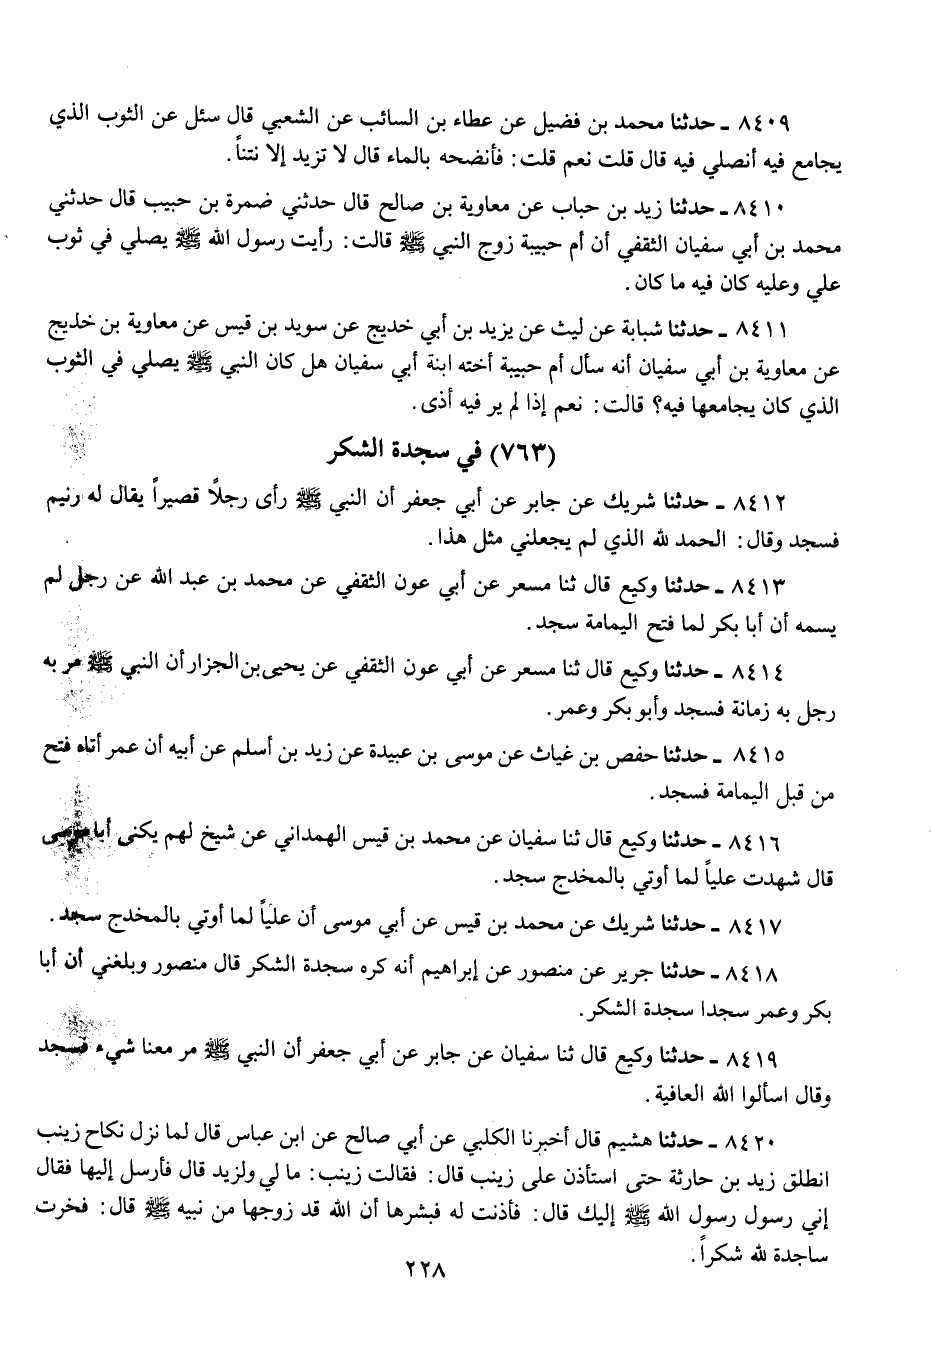 ٨٤٠٩ ـ حدثنا محمد بن فضيل عن عطاء بن السائب عن الشعبي قال سئل عن الثوب الذي
يجامع فيه أنصلي فيه قال قلت نعم قلت: فأنضحه بالماء قال لا تزيد إلا نتناً.
٨٤١٠ ـ حدثنا زيد بن حباب عن معاوية بن صالح قال حدثني ضمرة بن حبيب قال حدثني
محمد بن أبي سفيان الثقفي أن أم حبيبة زوج النبي ﷺ قالت: رأيت رسول الله ﷺ يصلي في ثوب
علي وعليه كان فيه ما كان.
٨٤١١ ـ حدثنا شبابة عن ليث عن يزيد بن أبي خديج عن سويد بن قيس عن معاوية بن خديج
عن معاوية بن أبي سفيان أنه سأل أم حبيبة أخته ابنة أبي سفيان هل كان النبي ﷺ يصلي في الثوب
الذي كان يجامعها فيه؟ قالت: نعم إذا لم ير فيه أذى.
(٧٦٣) في سجدة الشكر
٨٤١٢ ـ حدثنا شريك عن جابر عن أبي جعفر أن النبي ﷺ رأى رجلاً قصيراً يقال له رنيم
فسجد وقال: الحمد لله الذي لم يجعلني مثل هذا.
٨٤١٣ ـ حدثنا وكيع قال ثنا مسعر عن أبي عون الثقفي عن محمد بن عبد الله عن رجل لم
يسمه أن أبا بكر لما فتح اليمامة سجد.
٨٤١٤ ـ حدثنا وكيع قال ثنا مسعر عن أبي عون الثقفي عن يحيى بن الجزار أن النبي ﷺ مر به
رجل به زمانة فسجد وأبو بكر وعمر.
٨٤١٥ ـ حدثنا حفص بن غياث عن موسى بن عبيدة عن زيد بن أسلم عن أبيه أن عمر أتاه فتح
من قبل اليمامة فسجد.
٨٤١٦ ـ حدثنا وكيع قال ثنا سفيان عن محمد بن قيس الهمداني عن شيخ لهم يكنى أبا موسى
قال شهدت علياً لما أوتي بالمخدج سجد.
٨٤١٧ ـ حدثنا شريك عن محمد بن قيس عن أبي موسى أن علياً لما أوتي بالمخدج سجد.
٨٤١٨ ـ حدثنا جرير عن منصور عن إبراهيم أنه كره سجدة الشكر قال منصور وبلغني أن أبا
بكر وعمر سجدا سجدة الشكر.
٨٤١٩ ـ حدثنا وكيع قال ثنا سفيان عن جابر عن أبي جعفر أن النبي ﷺ مر معنا شيء فسجد
وقال اسألوا الله العافية.
٨٤٢٠ ـ حدثنا هشيم قال أخبرنا الكلبي عن أبي صالح عن ابن عباس قال لما نزل نكاح زينب
انطلق زيد بن حارثة حتى استأذن على زينب قال: فقالت زينب: ما لي ولزيد قال فأرسل إليها فقال
إني رسول رسول الله ﷺ إليك قال: فأذنت له فبشرها أن الله قد زوجها من نبيه ﷺ قال: فخرت
ساجدة لله شكراً.
٢٢٨